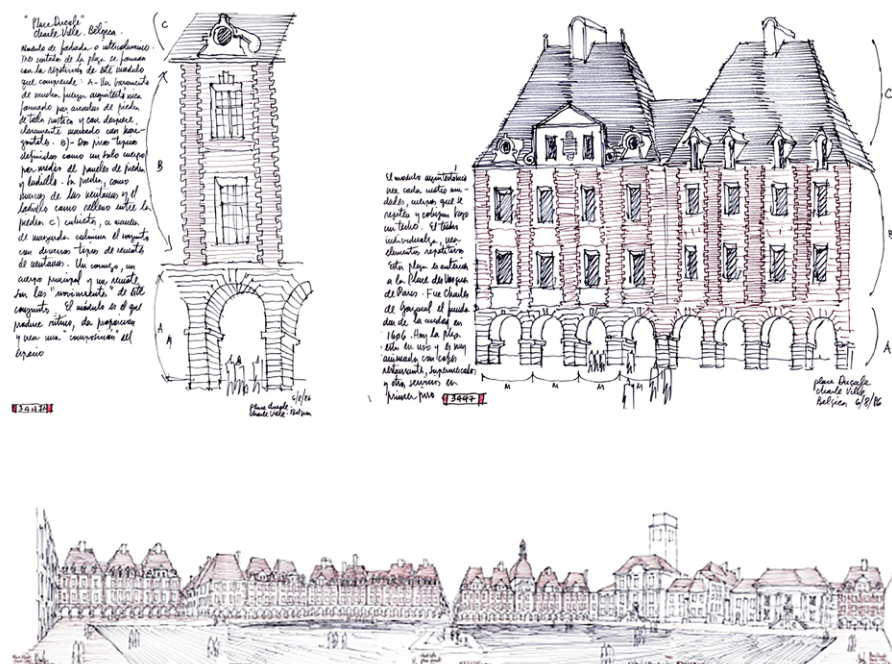 "Place Ducale"
Charle Ville. Bélgica.
Modulo de fachada o intercolumnio.
Tres costados de la plaza se forman
con la repeticion de este modulo
que comprende: A- Un basamento
de mucha fuerza arquitectonica
formado por arcadas de piedra
de talla rustica y con despiece
claramente marcado con hori-
zontales. B)- Dos pisos tipos
definidos como un solo cuerpo
por medio de paneles de piedra
y ladrillo. La piedra, como
marcos de las ventanas y el
ladrillo como relleno entre la
piedra C) cubierta, a manera
de mazarda culmina el conjunto
con diversos tipos de remate
de ventanas. Un zocalo, un
cuerpo principal y un remate
son los "movimientos" de este
conjunto. El modulo es el que
produce ritmo, da proporcion
y crea una "composicion" del
espacio
C
B
A
6/8/86
place ducale
charle Ville. Belgica
El modulo arquitectonico
crea cada cuatro uni-
dades, cuerpos que se
repiten y cobijan bajo
un techo. El techo
individualiza, crea
elementos repetitivos
Esta plaza es anterior
a la Place des Vosges
de Paris. Fue Charles
de Gonzague el funda
dor de la ciudad en
1606. Hoy la plaza
esta en uso y es muy
animada con cafes
restaurante, supermercados
y otros servicios en
primer piso
3447
C
B
A
M M M M
place Ducale
charle Ville
Belgica 6/8/86